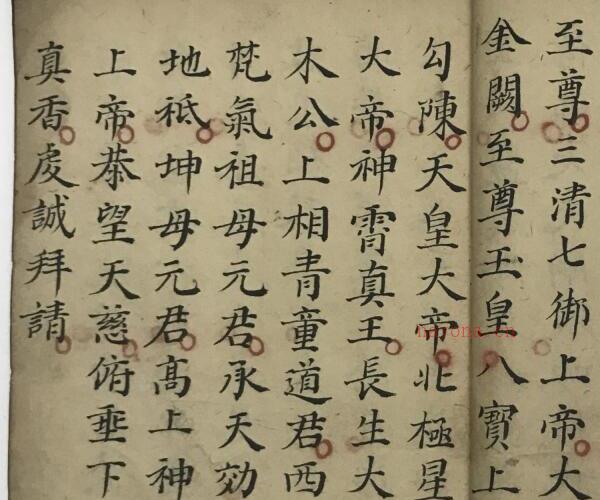 至尊三清七御上帝大
金闕至尊玉皇八寶上
勾陳天皇大帝北極星
大帝神霄真王長生大
木公上相青童道君西
梵氣祖母元君承天効
地祇坤母元君高上神
上帝恭望天慈俯垂下
真香虔誠拜請